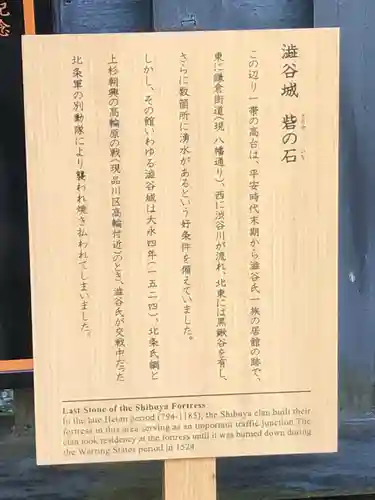 記念
澁谷城 砦の石
とりで いし
この辺り一帯の高台は、平安時代末期から澁谷氏一族の居館の跡で、
東に鎌倉街道(現 八幡通り)、西に渋谷川が流れ、北東には黒鍬谷を有し、
さらに数箇所に湧水があるという好条件を備えていました。
しかし、その館いわゆる澁谷城は大永四年(一五二四)、北条氏綱と
上杉朝興の高輪原の戦(現品川区高輪付近)のとき、澁谷氏が交戦中だった
北条軍の別動隊により襲われ焼き払われてしまいました。
Last Stone of the Shibuya Fortress
In the late Heian period (794-1185), the Shibuya clan built their
fortress in this area serving as an important traffic junction.The
clan took residency at the fortress until it was burned down during
the Warring States period in 1524